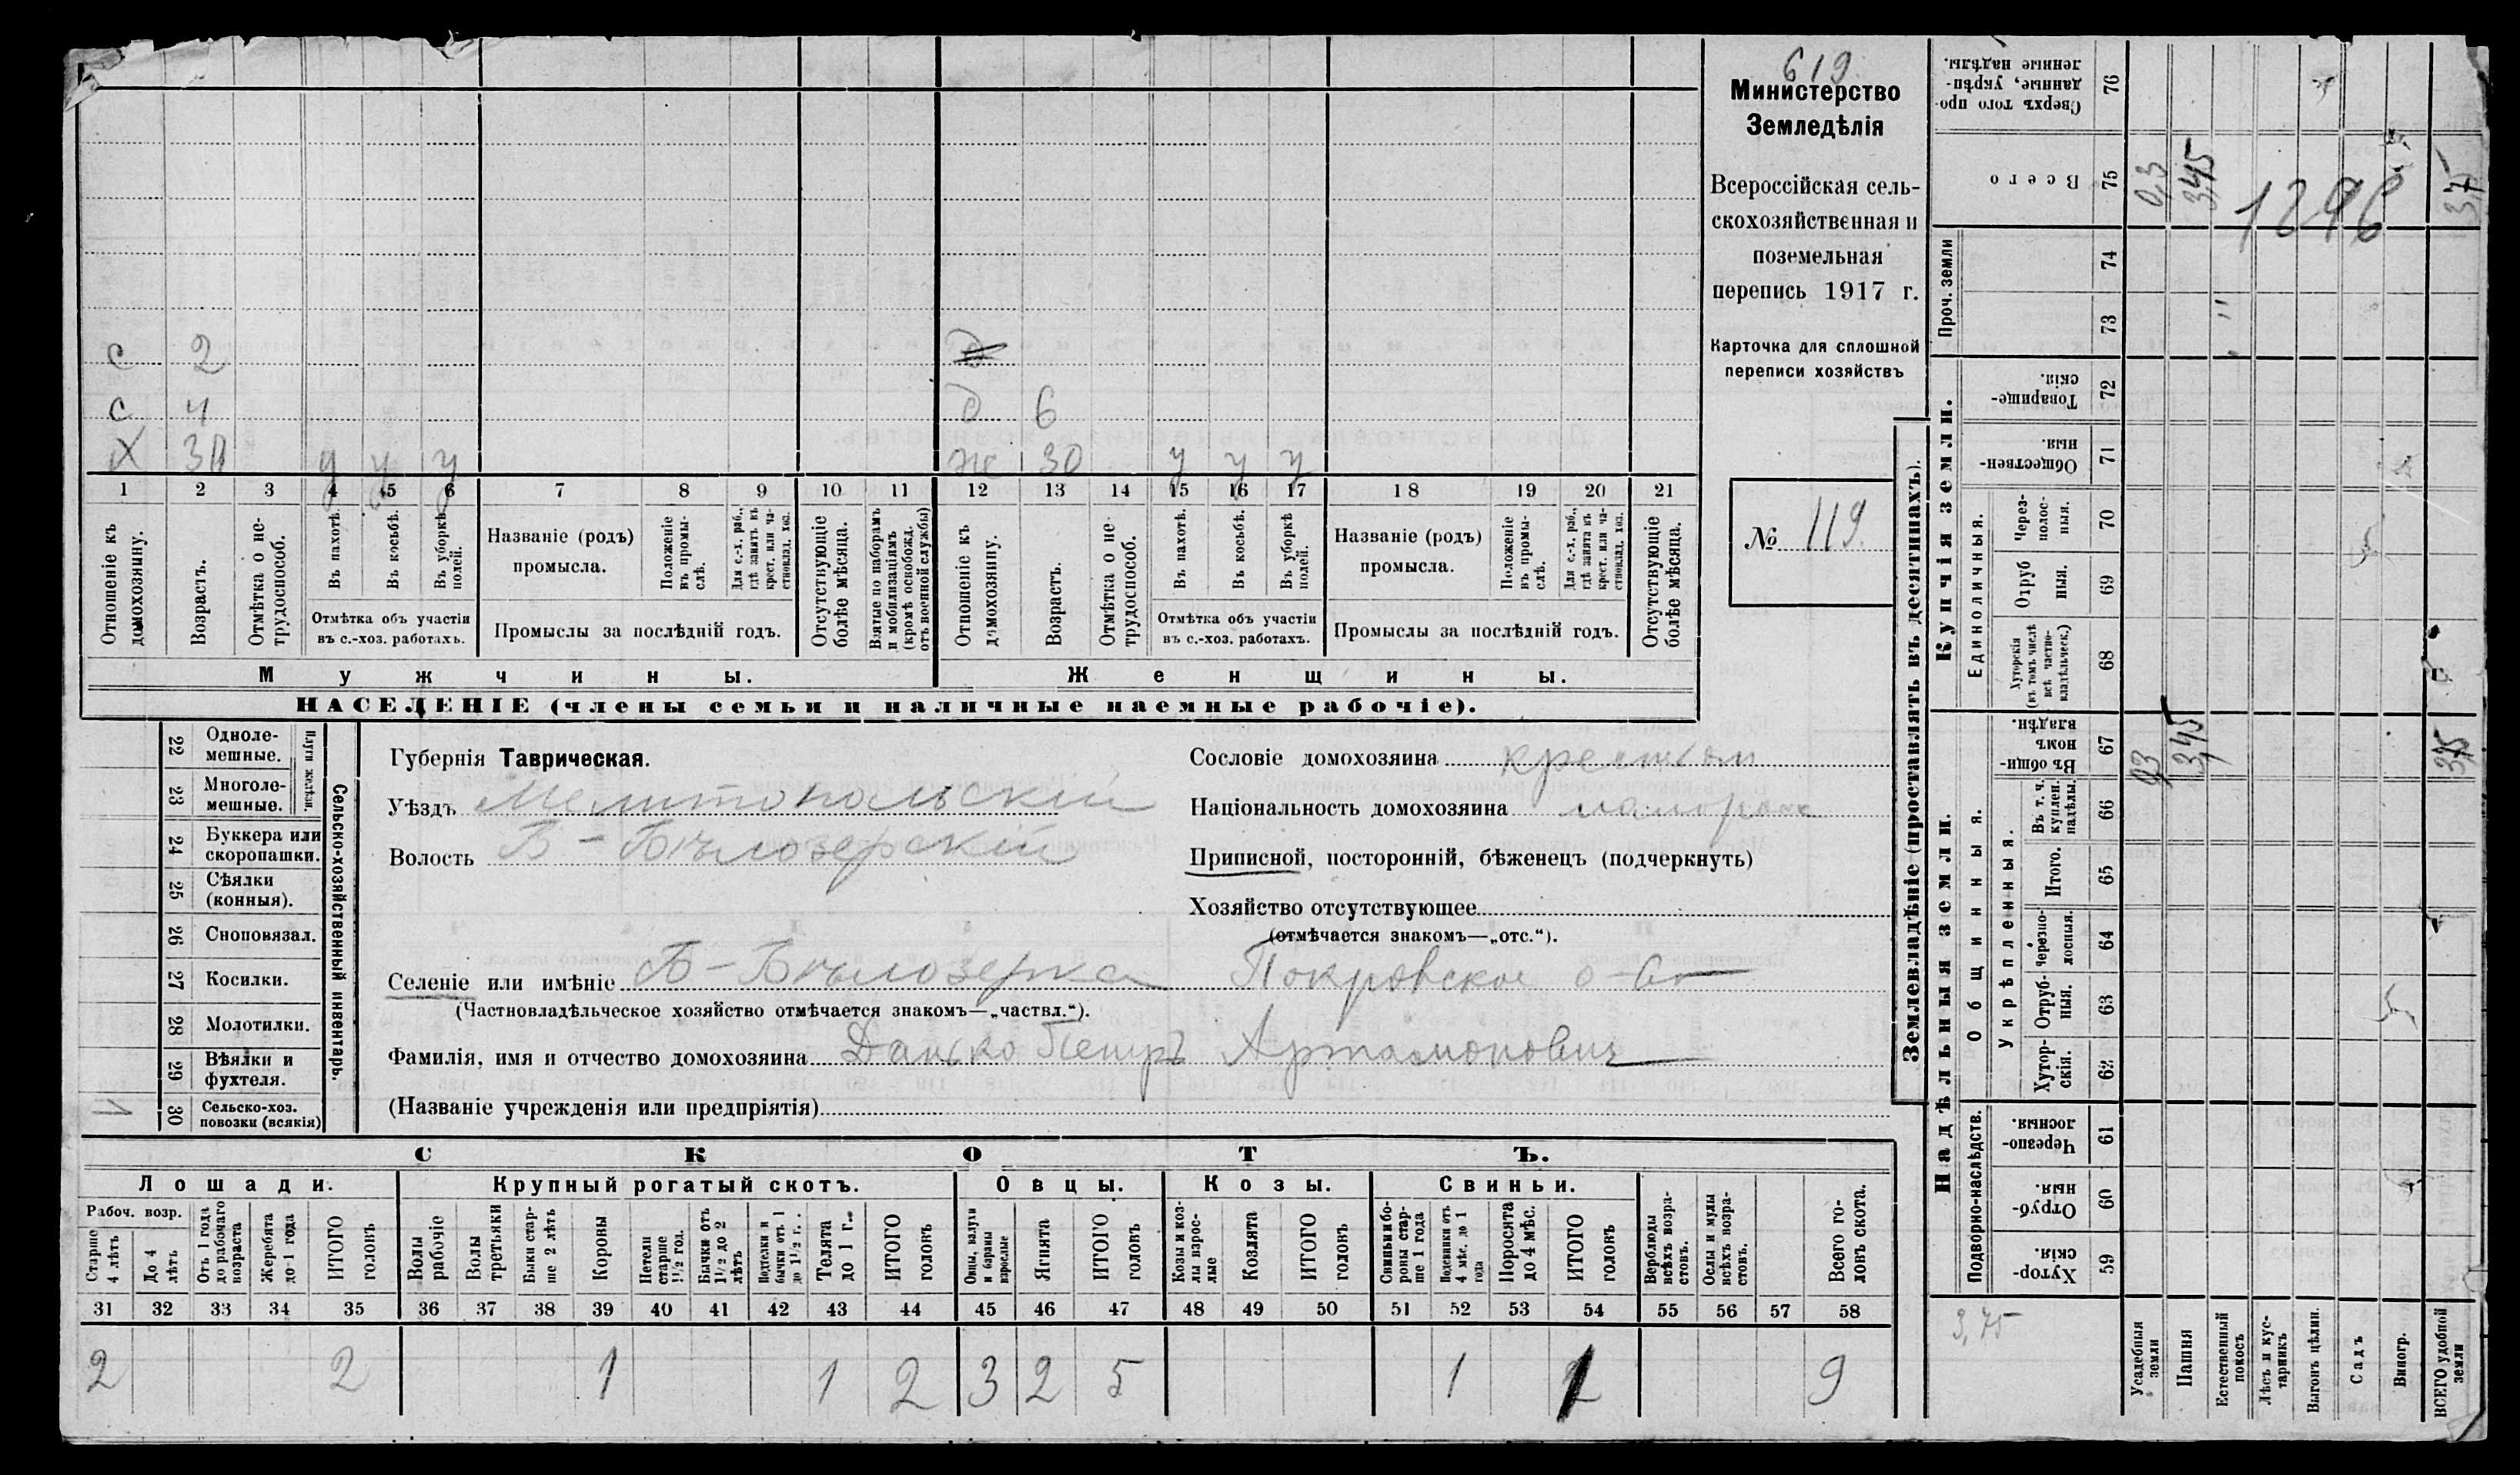 619
Министерство
Земледѣлія
Всероссійская сель-
скохозяйственная и
поземельная
перепись 1917 г.
Карточка для сплошной
переписи хозяйствъ
№ 119
с 2
с 4 д 6
Х у у ж 30 у у у
1 2 3 4 5 6 7 8 9 10 11 12 13 14 15 16 17 18 19 20 21
Отношеніе къ домохозяину.
Возрастъ.
Отмѣтка о не-трудоспособ.
Въ пахотѣ.
Въ косьбѣ.
Въ уборкѣ полей.
Отмѣтка объ участіи
въ с.-хоз. работахъ.
Названіе (родъ)
промысла.
Положеніе въ промы-слѣ.
Для с.-х. раб., гдѣ занятъ въ крест. или ча-стновлад. хоз.
Промыслы за послѣдній годъ.
Отсутствующіе болѣе мѣсяца.
Взятые по наборамъ и мобилизаціямъ (кромѣ освобожд. отъ военной службы)
Отношеніе къ домохозяину.
Возрастъ.
Отмѣтка о не-трудоспособ.
Въ пахотѣ.
Въ косьбѣ.
Въ уборкѣ полей.
Отмѣтка объ участіи
въ с.-хоз. работахъ.
Названіе (родъ)
промысла.
Положеніе въ промы-слѣ.
Для с.-х. раб., гдѣ занята въ крест. или ча-стновлад. хоз.
Промыслы за послѣдній годъ.
Отсутствующіе болѣе мѣсяца.
Мужчины. Женщины.
НАСЕЛЕНІЕ (члены семьи и наличные наемные рабочіе).
22 Одноле-мешные.
23 Многоле-мешные.
Плуги желѣзн.
24 Буккера или скоропашки.
25 Сѣялки (конныя).
26 Сноповязал.
27 Косилки.
28 Молотилки.
29 Вѣялки и фухтеля.
30 Сельско-хоз. повозки (всякія)
Сельско-хозяйственный инвентарь.
Губернія Таврическая.
Уѣздъ Мелитопольскій
Волость Б-Бѣлозерскій
Сословіе домохозяина крестьян
Національность домохозяина малорос
Приписной, посторонній, бѣженецъ (подчеркнуть)
Хозяйство отсутствующее
(отмѣчается знакомъ—„отс.“).
Селеніе или имѣніе Б-Бѣлозерка Покровское о-во
(Частновладѣльческое хозяйство отмѣчается знакомъ—„частвл.“).
Фамилія, имя и отчество домохозяина Данько Петръ Артамоновичъ
(Названіе учрежденія или предпріятія)
СКОТЪ.
Лошади. Крупный рогатый скотъ. Овцы. Козы. Свиньи.
Рабоч. возр.
Старше 4 лѣтъ
До 4 лѣтъ
Отъ 1 года до рабочаго возраста
Жеребята до 1 года
ИТОГО головъ
Волы рабочіе
Волы третьяки
Быки стар-ше 2 лѣтъ
Коровы
Нетели старше 1½ год.
Бычки отъ 1½ до 2 лѣтъ
Подтелки и бычки отъ 1 до 1½ г.
Телята до 1 г.
ИТОГО головъ
Овцы, валухи и бараны взрослые
Ягнята
ИТОГО головъ
Козы и коз-лы взрос-лые
Козлята
ИТОГО головъ
Свиньи и бо-ровы стар-ше 1 года
Подсвинки отъ 4 мѣс. до 1 года
Поросята до 4 мѣс.
ИТОГО головъ
Верблюды всѣхъ возра-стовъ.
Ослы и мулы всѣхъ возра-стовъ.
Всего го-ловъ скота.
31 32 33 34 35 36 37 38 39 40 41 42 43 44 45 46 47 48 49 50 51 52 53 54 55 56 57 58
2 2 1 1 2 3 2 5 1 1 9
Землевладѣніе (проставлять въ десятинахъ).
Надѣльныя земли. Купчія земли. Проч. земли
Подворно-наслѣдств.
Общинныя.
Укрѣпленныя.
Единоличныя.
Сверхъ того про-данные, укрѣп-ленные надѣлы. 76
Всего 75 0,3 3,45 3,75
1296
74
73
Товарище-скія. 72
Обществен-ныя. 71
Через-полос-ныя. 70
Отруб ныя. 69
Хуторскія (въ томъ числѣ всѣ частно-владѣльческ.) 68
Въ общин-номъ владѣн. 67 0,3 3,45 3,75
Въ т. ч. куплен. надѣлы. 66
Итого. 65
Черезпо-лосныя. 64
Отруб-ныя. 63
Хутор-скія. 62
Черезпо-лосныя. 61
Отруб-ныя. 60
Хутор-скія. 59
3,75
Усадебныя земли
Пашня
Естественный покосъ
Лѣсъ и кус-тарникъ
Выгонъ цѣлин.
Садъ
Виногр.
ВСЕГО удобной земли